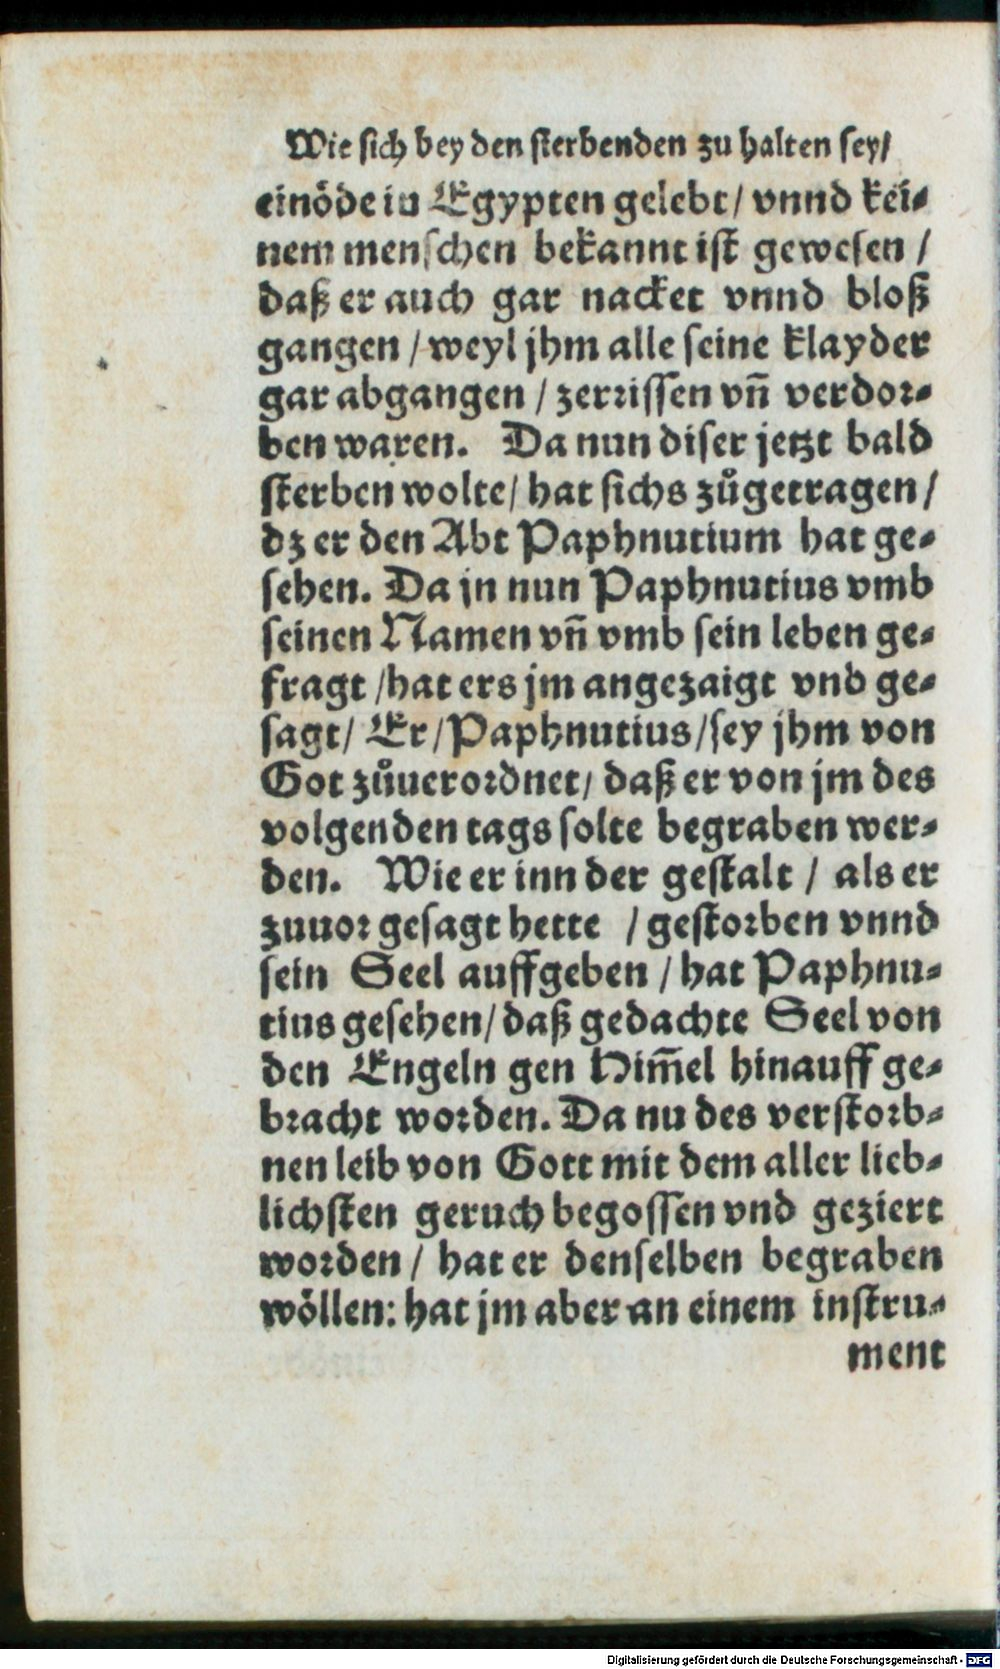 Wie sich bey den sterbenden zu halten sey/
einöde in Egypten gelebt / vnnd kei⸗
nem menschen bekannt ist gewesen /
daß er auch gar nacket vnnd bloß
gangen / weyl jhm alle seine klayder
gar abgangen / zerrissen vñ verdor⸗
ben waren. Da nun diser jetzt bald
sterben wolte / hat sichs zůgetragen /
dz er den Abt Paphnutium hat ge⸗
sehen. Da jn nun Paphnutius vmb
seinen Namen vñ vmb sein leben ge⸗
fragt / hat ers jm angezaigt vnd ge⸗
sagt / Er / Paphnutius / sey jhm von
Got zůuerordnet / daß er von jm des
volgenden tags solte begraben wer⸗
den. Wie er inn der gestalt / als er
zuuor gesagt hette / gestorben vnnd
sein Seel auffgeben / hat Paphnu⸗
tius gesehen / daß gedachte Seel von
den Engeln gen Him̄el hinauff ge⸗
bracht worden. Da nu des verstorb⸗
nen leib von Gott mit dem aller lieb⸗
lichsten geruch begossen vnd geziert
worden / hat er denselben begraben
wöllen: hat jm aber an einem instru⸗
ment
Digitalisierung gefördert durch die Deutsche Forschungsgemeinschaft - DFG